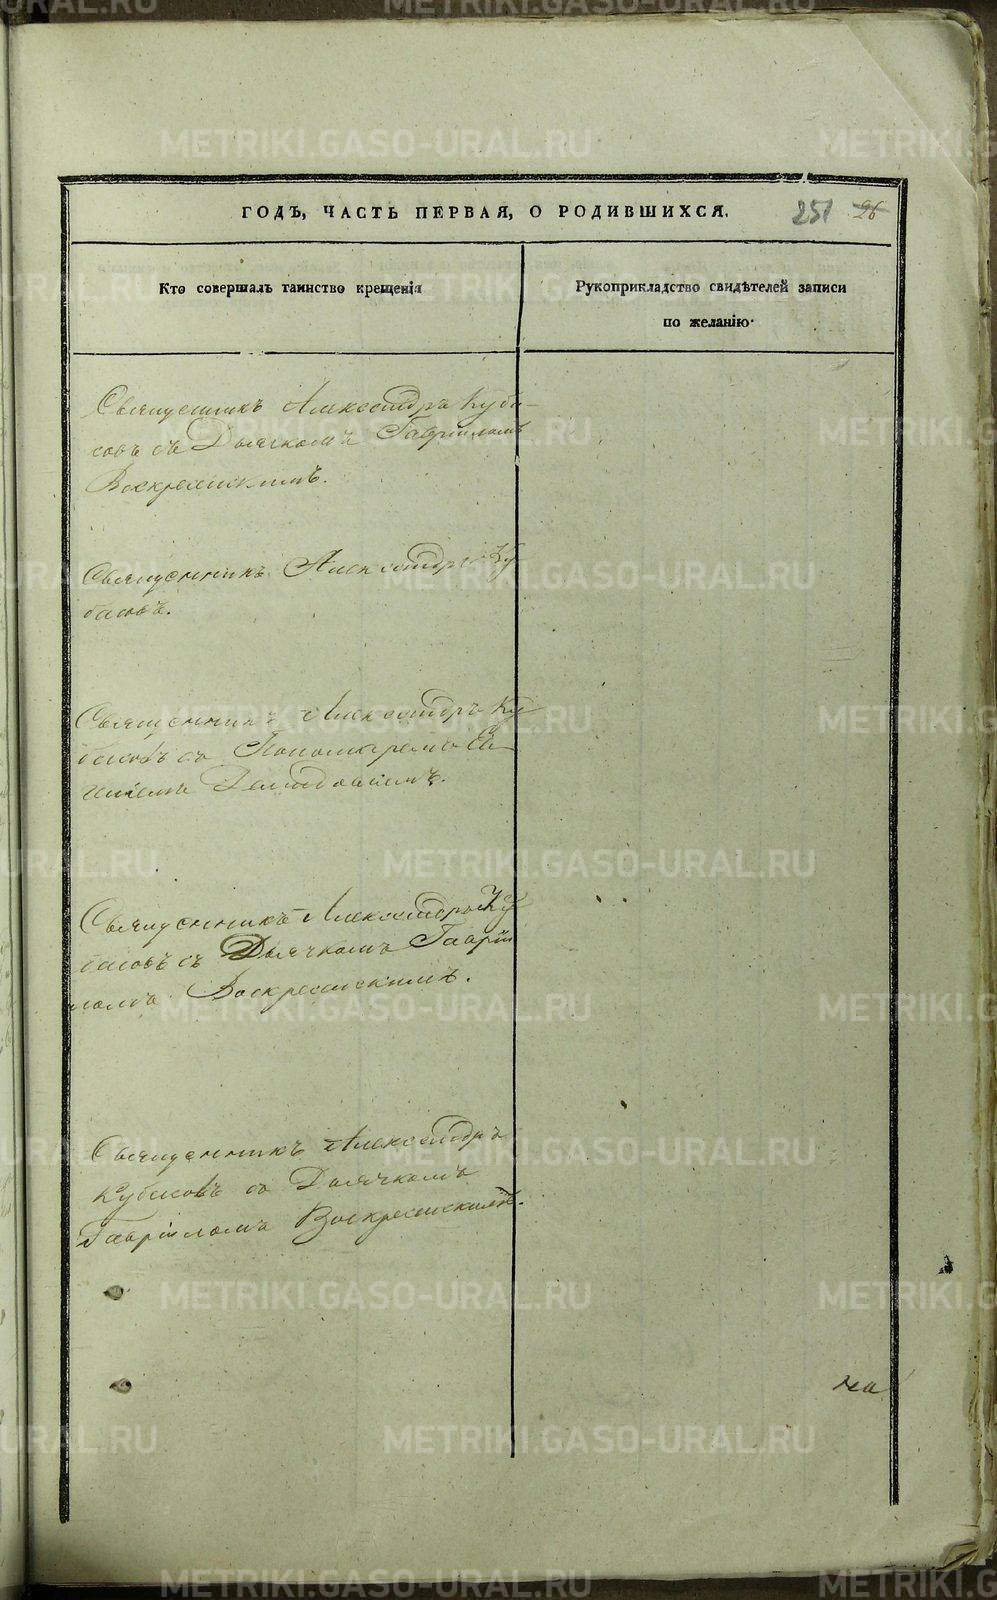 ГОДЪ, ЧАСТЬ ПЕРВАЯ, О РОДИВШИХСЯ. 251 26
Кто совершалъ таинство крещенія
Рукоприкладство свидѣтелей записи
по желанію.
Священникъ Александръ Куба-
совъ съ Дьячкомъ Гавріиломъ
Воскресенскимъ.
Священникъ Александръ Ку
басовъ.
Священникъ Александръ Ку
басовъ съ Пономаремъ
Демидовымъ.
Священникъ Александръ Ку
басовъ съ Дьячкомъ Гаврiи
ломъ Воскресенскимъ.
Священникъ Александръ
Кубасовъ съ Дьячкомъ
Гавріиломъ Воскресенскимъ.
на
METRIKI.GASO-URAL.RU